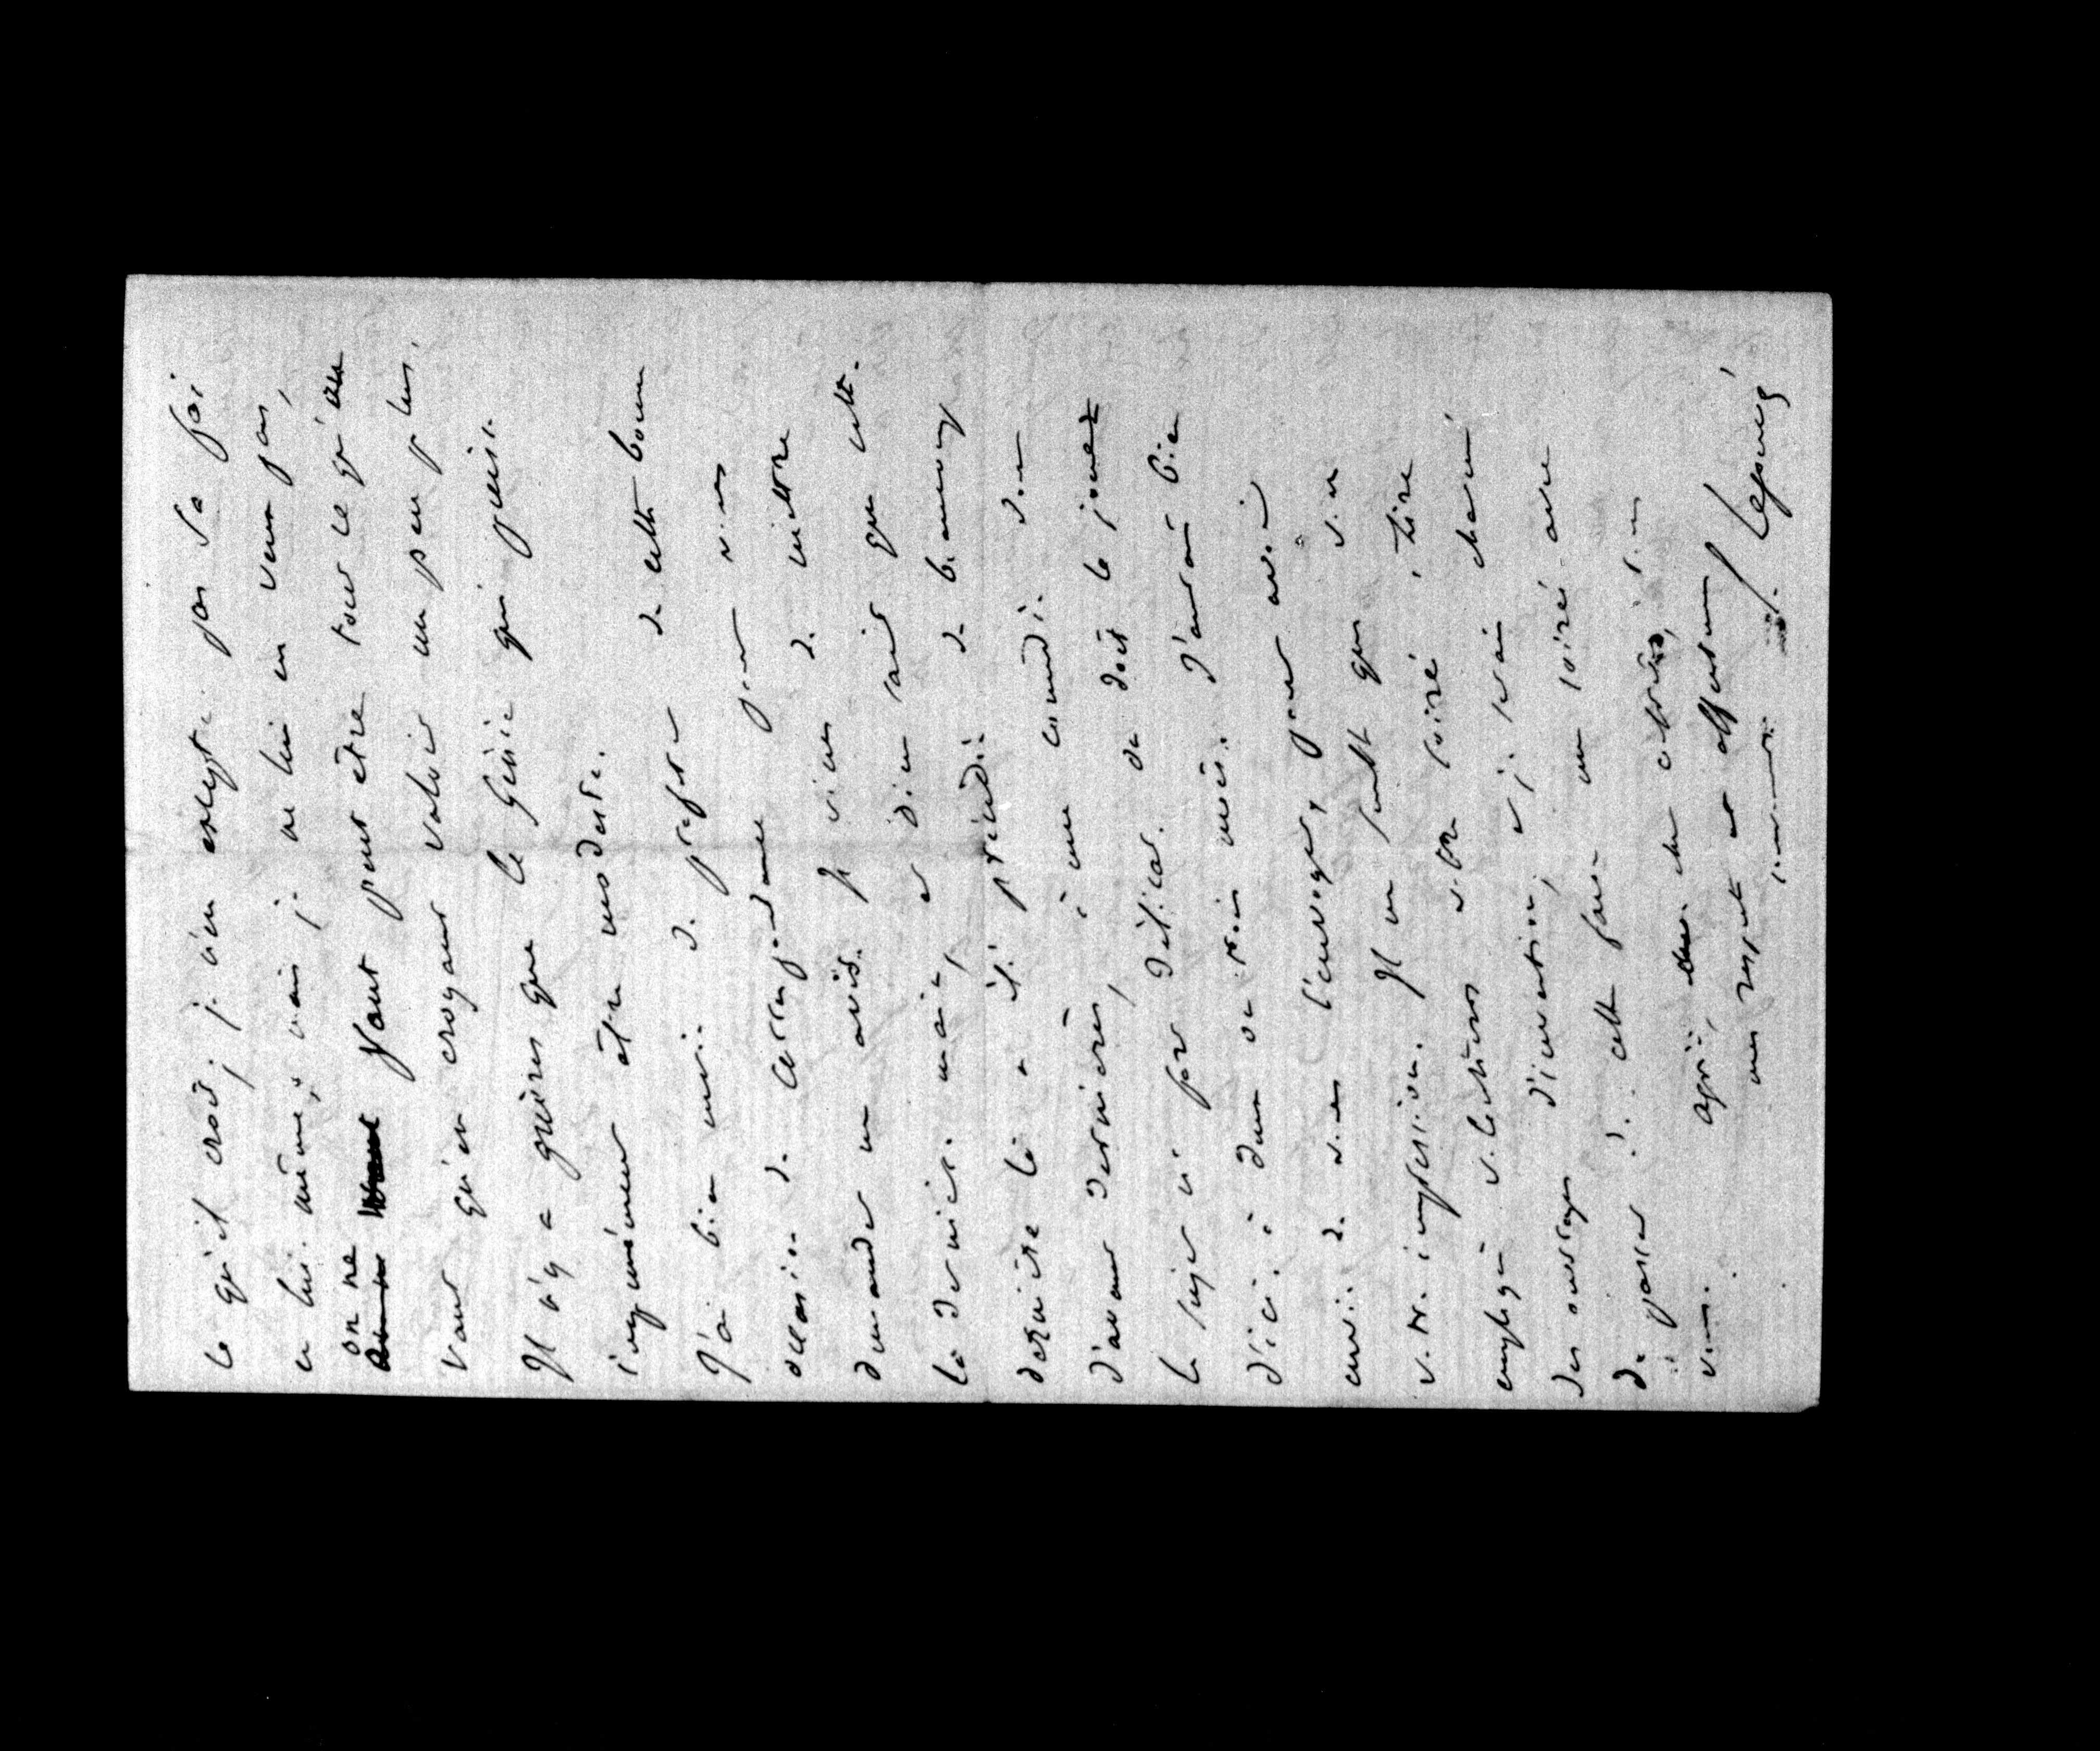 ce qu'il croit, je n'en excepte pas sa foi
en lui même; mais je ne lui en veux pas,
on ne vaut peut être tout ce qu'on
vaut qu'en croyant valoir un peu plus.
Il n'y a guères que le génie qui puisse
impunément être modeste.
J'ai bien envie de profiter de cette bonne
occasion de correspondance pour vous
demander un avis. Je viens de mettre
la dernière main, et Dieu sait que cette
dernière là a été précédée de beaucoup
d'avant dernières, à une comédie dont
le sujet est fort délicat. On doit le jouer
d'ici à deux ou trois mois. J'aurais bien
envie de vous l'envoyer, pour avoir
votre impression. Il me semble que vous
employez volontiers votre soirée à lire
des ouvrages d'invention, et je serais charmé
de passer de cette façon une soirée avec
vous.
Agréez, cher confrère,
mes respects et affectueux
sentiments.